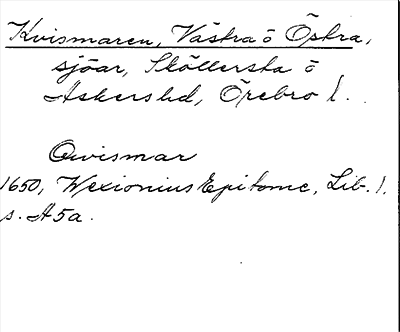 Kvismaren, Västra o Östra,
sjöar, Sköllersta o
Askers hd, Örebro l.
Qwismar
1650, Wexionius Epitome, Lib. 1.
s. A5a.